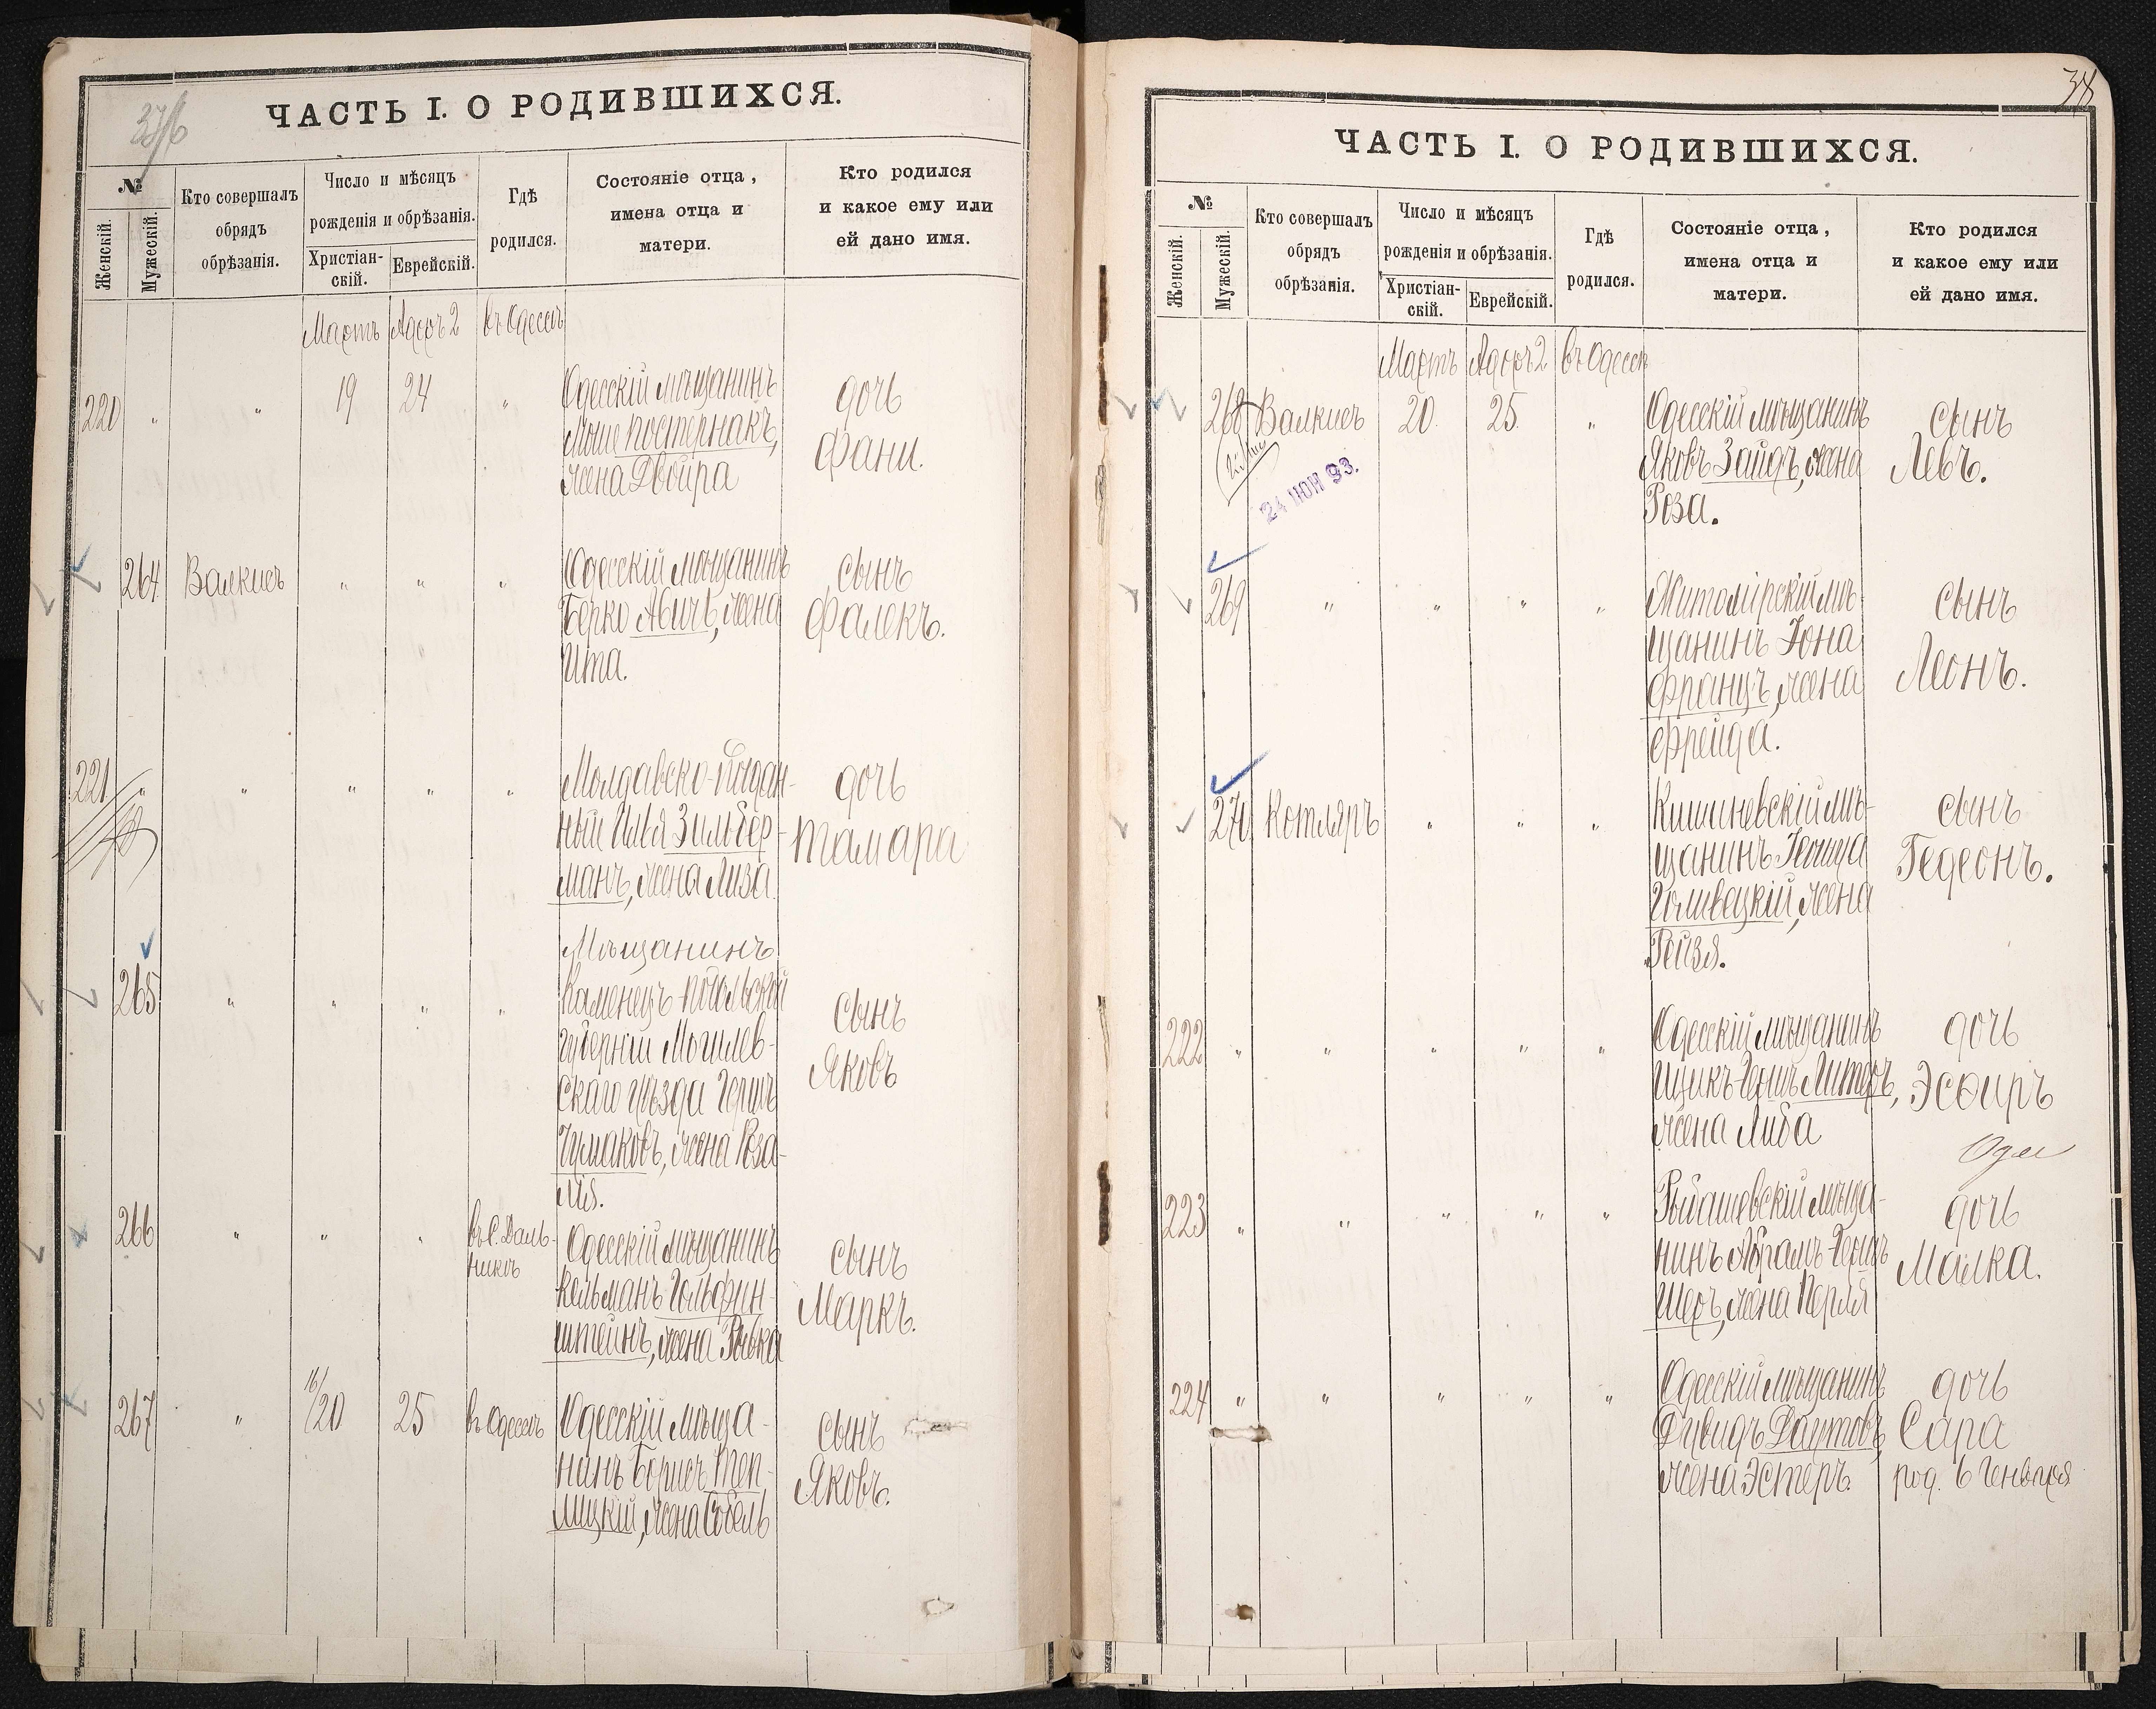 ЧАСТЬ I. О РОДИВШИХСЯ.
№
Женскій.
Мужескій.
Кто совершалъ
обрядъ
обрѣзанія.
Число и мѣсяцъ
рожденія и обрѣзанія.
Христіан-
скій.
Еврейскій.
Гдѣ
родился.
Состояніе отца,
имена отца и
матери.
Кто родился
и какое ему или
ей дано имя.
Мартъ Адаръ 2 въ Одессѣ
220 " " 19 24 "
Одесскій мѣщанинъ
Моше Постернакъ,
жена Двойра
дочь
Фани.
264 Валкисъ " " "
Одесскій мѣщанинъ
Берко Авичъ, жена
Ита.
сынъ
Фалекъ.
221 " " " " "
Молдавско-подан-
ный Илья Зильбер-
манъ, жена Лиза.
дочь
Тамара
265 " " " "
Мѣщанинъ
Каменецъ-Подольской
губерніи Могилев-
скаго уѣзда Гершъ
Чумаковъ, жена Роза-
лія.
сынъ
Яковъ
266 " " " въ С. Даль-
никъ
Одесскій мѣщанинъ
Кельманъ Гольдфин-
штейнъ, жена Рывка
сынъ
Маркъ.
267 " 16/20 25 въ Одессѣ
Одесскій мѣща-
нинъ Борисъ Теп-
лицкій, жена Собель
сынъ
Яковъ.
38
ЧАСТЬ I. О РОДИВШИХСЯ.
№
Женскій.
Мужескій.
Кто совершалъ
обрядъ
обрѣзанія.
Число и мѣсяцъ
рожденія и обрѣзанія.
Христіан-
скій.
Еврейскій.
Гдѣ
родился.
Состояніе отца,
имена отца и
матери.
Кто родился
и какое ему или
ей дано имя.
Мартъ Адаръ 2 въ Одессѣ
268 Валкисъ 20. 25. "
24 ИЮН 93.
Одесскій мѣщанинъ
Яковъ Зайдъ, жена
Роза.
сынъ
Левъ.
269 " " " "
Житомірскій мѣ-
щанинъ Іона
Францъ, жена
Фрейда.
сынъ
Леонъ.
270 Котляръ " " "
Кишиневскій мѣ-
щанинъ
жена
Рейзя.
сынъ
Гедеонъ.
222 " " " " "
Одесскій мѣщанинъ
Ицикъ Гершъ Литеръ,
жена Либа
дочь
Эсѳирь
223 " " " " "
мѣща-
нинъ Абрамъ Гершъ
Шеръ, жена Перля
дочь
Малка.
224 " " " " "
Одесскій мѣщанинъ
Дувидъ Даутовъ,
жена Эстеръ.
дочь
Сара
род. 6 Генваря